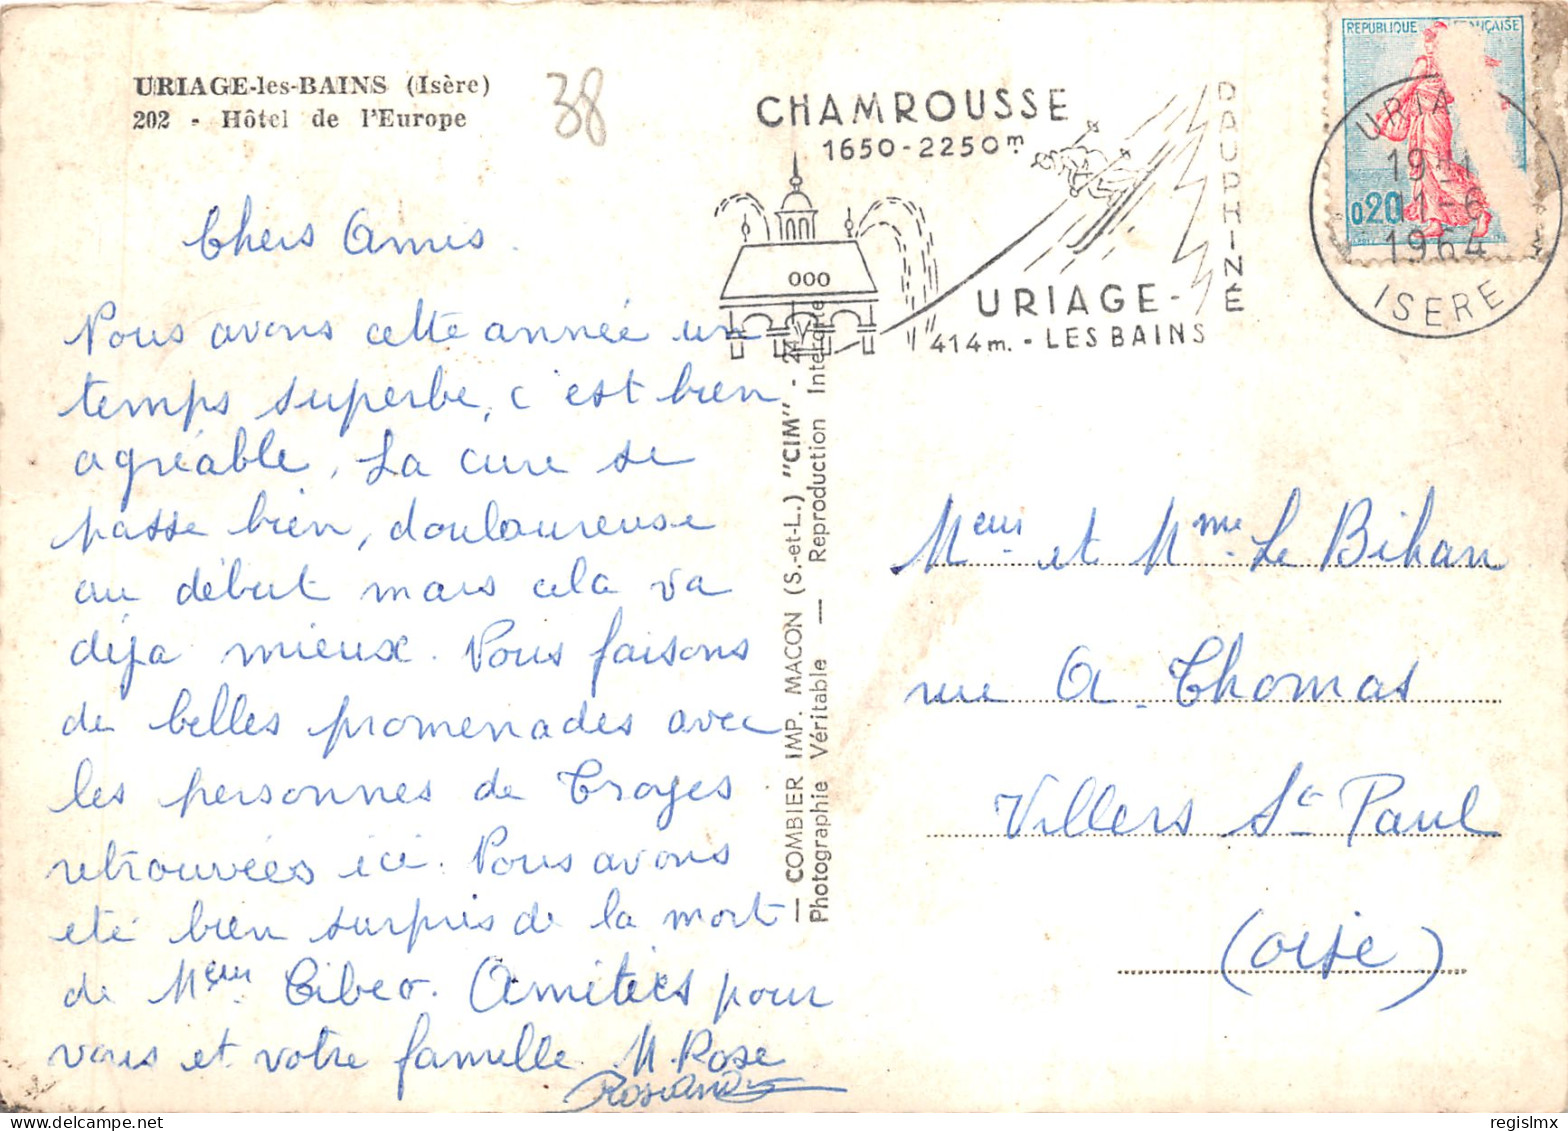 URIAGE-les-BAINS (Isère)
202 - Hôtel de l'Europe
38
Chers Amis.
Nous avons cette année un
temps superbe, c'est bien
agréable, La cure se
passe bien, douloureuse
au début mais cela va
déja mieux. Nous faisons
de belles promenades avec
les personnes de Troyes
retrouvées ici. Nous avons
été bien surpris de la mort
de Mr Tibeo. Amitiés pour
vous et votre famille. M. Rose
CHAMROUSSE
1650-2250m
DAUPHINÉ
URIAGE-
414m. - LES BAINS
REPUBLIQUE FRANÇAISE
0,20
URIA
19
11-6
1964
ISERE
— COMBIER IMP. MACON (S.-et-L.) "CIM" -
Photographie Véritable — Reproduction Interdite
Meur et Mme Le Bihan
rue A. Thomas
Villers St Paul
(oise)
regislmx